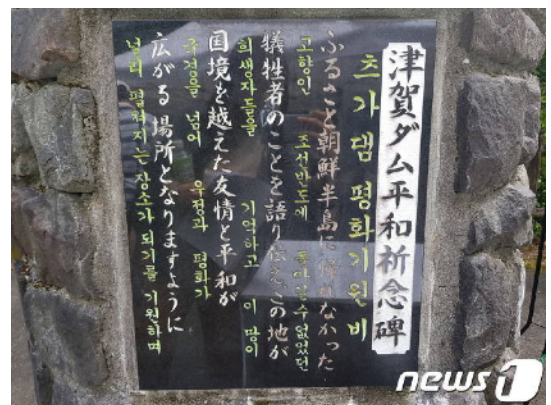 津賀ダム平和祈念碑
츠가댐 평화기원비
ふるさと朝鮮半島に帰れなかった
고향인 조선반도에 돌아갈 수 없었던
犠牲者のことを語り伝え、この地が
희생자들을 기억하고 이 땅이
国境を越えた友情と平和が
국경을 넘어 우정과 평화가
広がる場所となりますように
널리 펼쳐지는 장소가 되기를 기원하며
news1